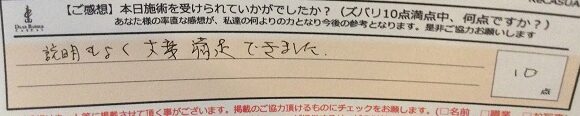 ReCASUAL
【ご感想】本日施術を受けられていかがでしたか？（ズバリ10点満点中、何点ですか？）
あなた様の率直な感想が、私達の何よりの力となり今後の参考となります。是非ご協力お願いします
説明もよく大変満足できました。
10
点
に掲載させて頂く事がございます。掲載のご協力頂けるものにチェックをお願いします。（□名前 □職業